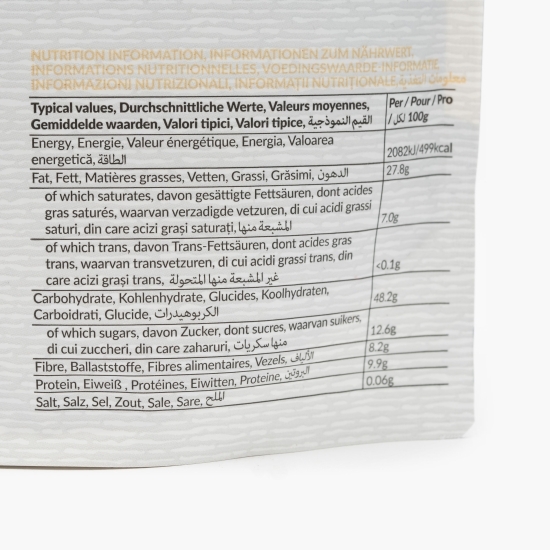 NUTRITION INFORMATION, INFORMATIONEN ZUM NÄHRWERT,
INFORMATIONS NUTRITIONNELLES, VOEDINGSWAARDE INFORMATIE,
INFORMAZIONI NUTRIZIONALI, INFORMAȚII NUTRIȚIONALE
Typical values, Durchschnittliche Werte, Valeurs moyennes,
Gemiddelde waarden, Valori tipici, Valori tipice, القيم النموذجية
Per / Pour / Pro
/ لكل 100g
Energy, Energie, Valeur énergétique, Energia, Valoarea
energetică, الطاقة
2082kJ/499kcal
Fat, Fett, Matières grasses, Vetten, Grassi, Grăsimi, الدهون
27.8g
of which saturates, davon gesättigte Fettsäuren, dont acides
gras saturés, waarvan verzadigde vetzuren, di cui acidi grassi
saturi, din care acizi grași saturați, المشبعة منها
7.0g
of which trans, davon Trans-Fettsäuren, dont acides gras
trans, waarvan transvetzuren, di cui acidi grassi trans, din
care acizi grași trans, غير المشبعة منها المتحولة
<0.1g
Carbohydrate, Kohlenhydrate, Glucides, Koolhraten,
Carboidrati, Glucide, الكربوهيدرات
48.2g
of which sugars, davon Zucker, dont sucres, waarvan suikers,
di cui zuccheri, din care zaharuri, منها سكريات
12.6g
Fibre, Ballaststoffe, Fibres alimentaires, Vezels, الألياف
8.2g
Protein, Eiweiß , Protéines, Eiwitten, Proteine, البروتين
9.9g
Salt, Salz, Sel, Zout, Sale, Sare, الملح
0.06g